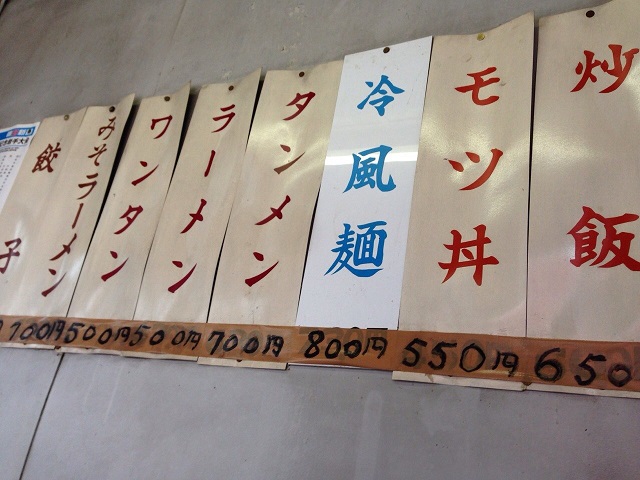 炒飯
モツ丼
冷風麺
タンメン
ラーメン
ワンタン
みそラーメン
餃子
700円
500円
500円
700円
800円
550円
650